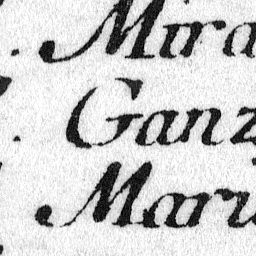 . Mira
. Ganz
Maru